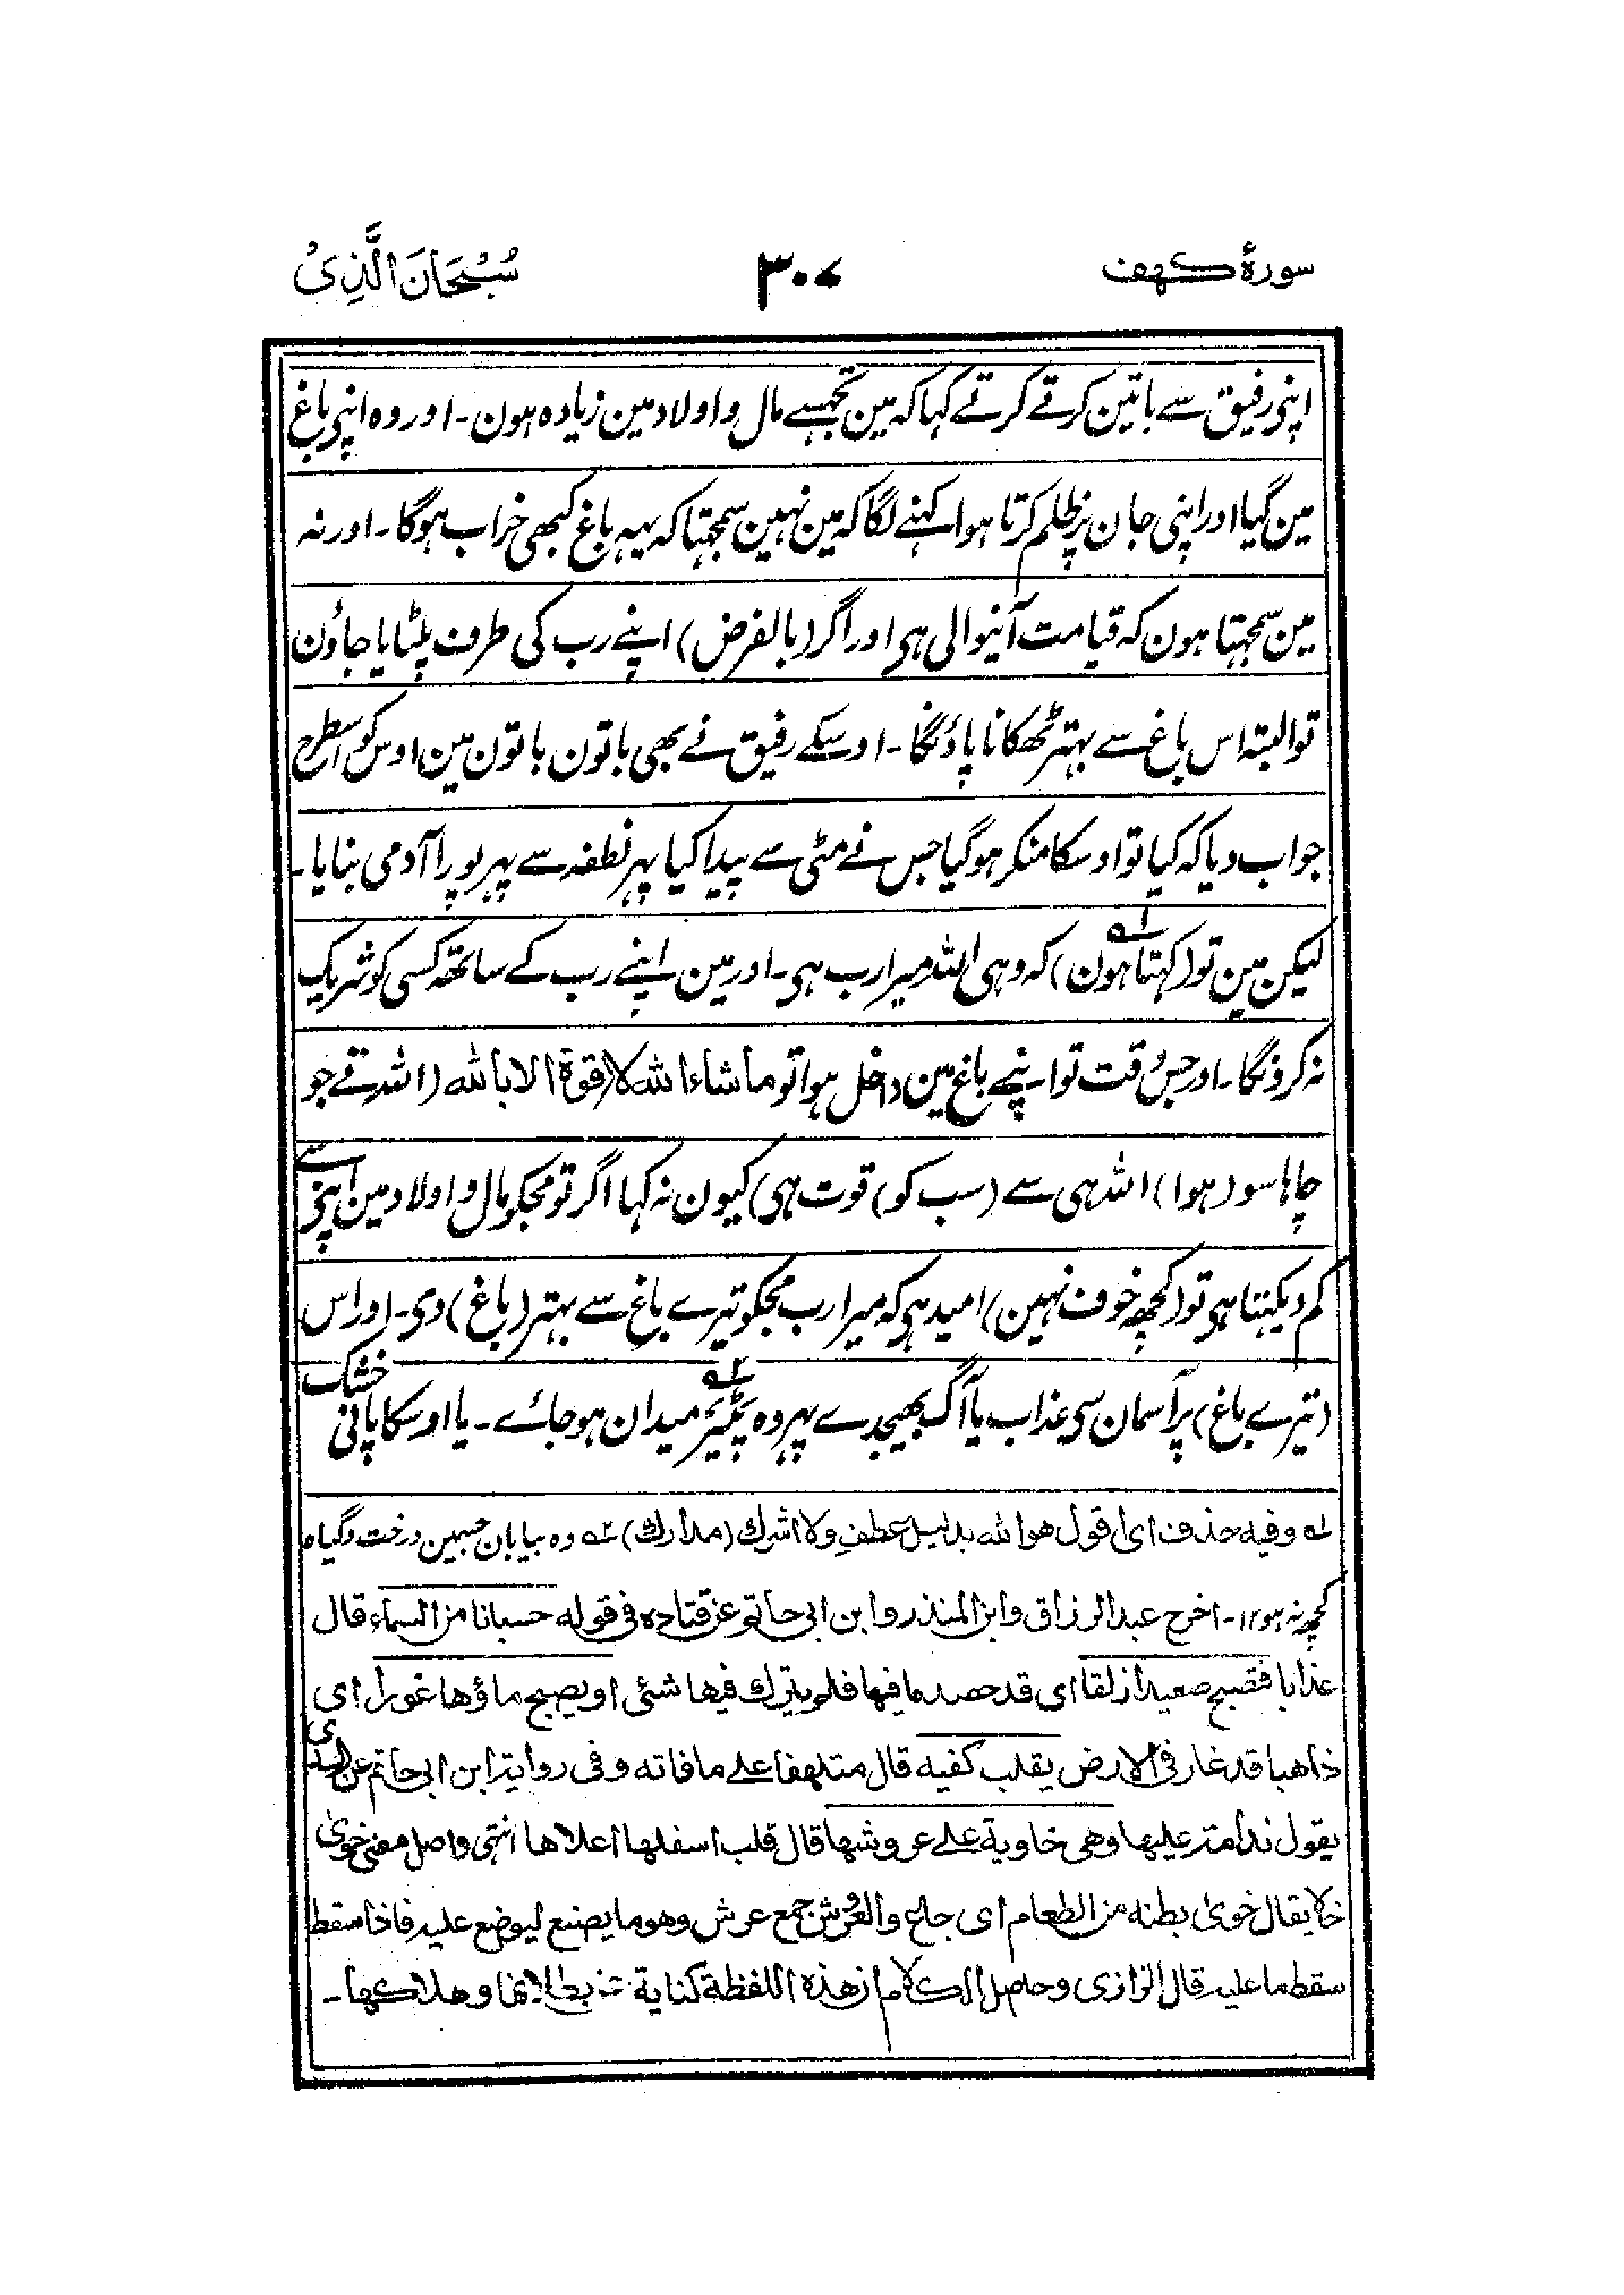 سورۂ کہف ۳۰۷ سُبْحَانَ الَّذِیْ
اپنی رفیق سے باتین کرتے کرتے کہا کہ مین تجہسے مال و اولاد مین زیادہ ہون۔ اور وہ اپنی باغ
مین گیا اور اپنی جان پر ظلم کرتا ہوا کہنے لگا کہ مین نہین سمجہتا کہ یہہ باغ کبھی خراب ہوگا۔ اور نہ
مین سمجہتا ہون کہ قیامت آنیوالی ہی اور اگر (بالفرض) اپنے رب کی طرف پلٹایا جاؤن
تو البتہ اس باغ سے بہتر ٹھکانا پاؤنگا۔ اوسکے رفیق نے بھی باتون باتون مین اوس کو اسطرح
جواب دیا کہ کیا تو اوسکا منکر ہوگیا جس نے مٹی سے پیدا کیا پہر نطفہ سے پہر پورا آدمی بنایا۔
لیکن مین تو (کہتا ہون)۱؎ کہ وہی اللہ میرا رب ہی۔ اور مین اپنے رب کے ساتھ کسی کو شریک
نہ کرونگا۔ اور جس وقت تو اپنے باغ مین داخل ہوا تو ماشاء اللہ لا قوة الا باللہ (اللہ نے جو
چاہا سو (ہوا) اللہ ہی سے (سب کو) قوت ہی) کیون نہ کہا اگر تو مجکو مال و اولاد مین اپنی سے
کم دیکہتا ہی تو (کچھ خوف نہین) امید ہی کہ میرا رب مجکو تیرے باغ سے بہتر (باغ) دی۔ اور اس
(تیرے باغ) پر آسمان سی عذاب یا آگ بھیجدے پہر وہ پٹپر۲؎ میدان ہوجائے۔ یا اوسکا پانی خشک
۱؎ وفیه حذف ای اقول هو الله بدلیل عطف ولا اشرك (مدارك) ۲؎ وہ بیابان جسمین درخت و گیاہ
کچھ نہ ہو ۱۲۔ اخرج عبد الرزاق وابن المنذر وابن ابی حاتم عن قتاده فی قوله حسبانا من السماء قال
عذابا فتصبح صعیدا زلقا ای قد حصد ما فیها فلم یترك فیها شئی او یصبح ماؤها غورا ای
ذاهبا قد غار فی الارض یقلب کفیه قال متلهفا علے ما فاته وفی روایة ابن ابی حاتم عن السدی
یقول ندامة علیها وهی خاویة علے عروشها قال قلب اسفلها اعلاها انتہی واصل معنی خوی
خلا یقال خوی بطنه من الطعام ای جاع والعُرُش جمع عرش وهو ما یصنع لیوضع علیه فاذا سقط
سقط ما علیه قال الرازی وحاصل الکلام ان هذه اللفظة کنایة عن بطلانها وهلاکها۔